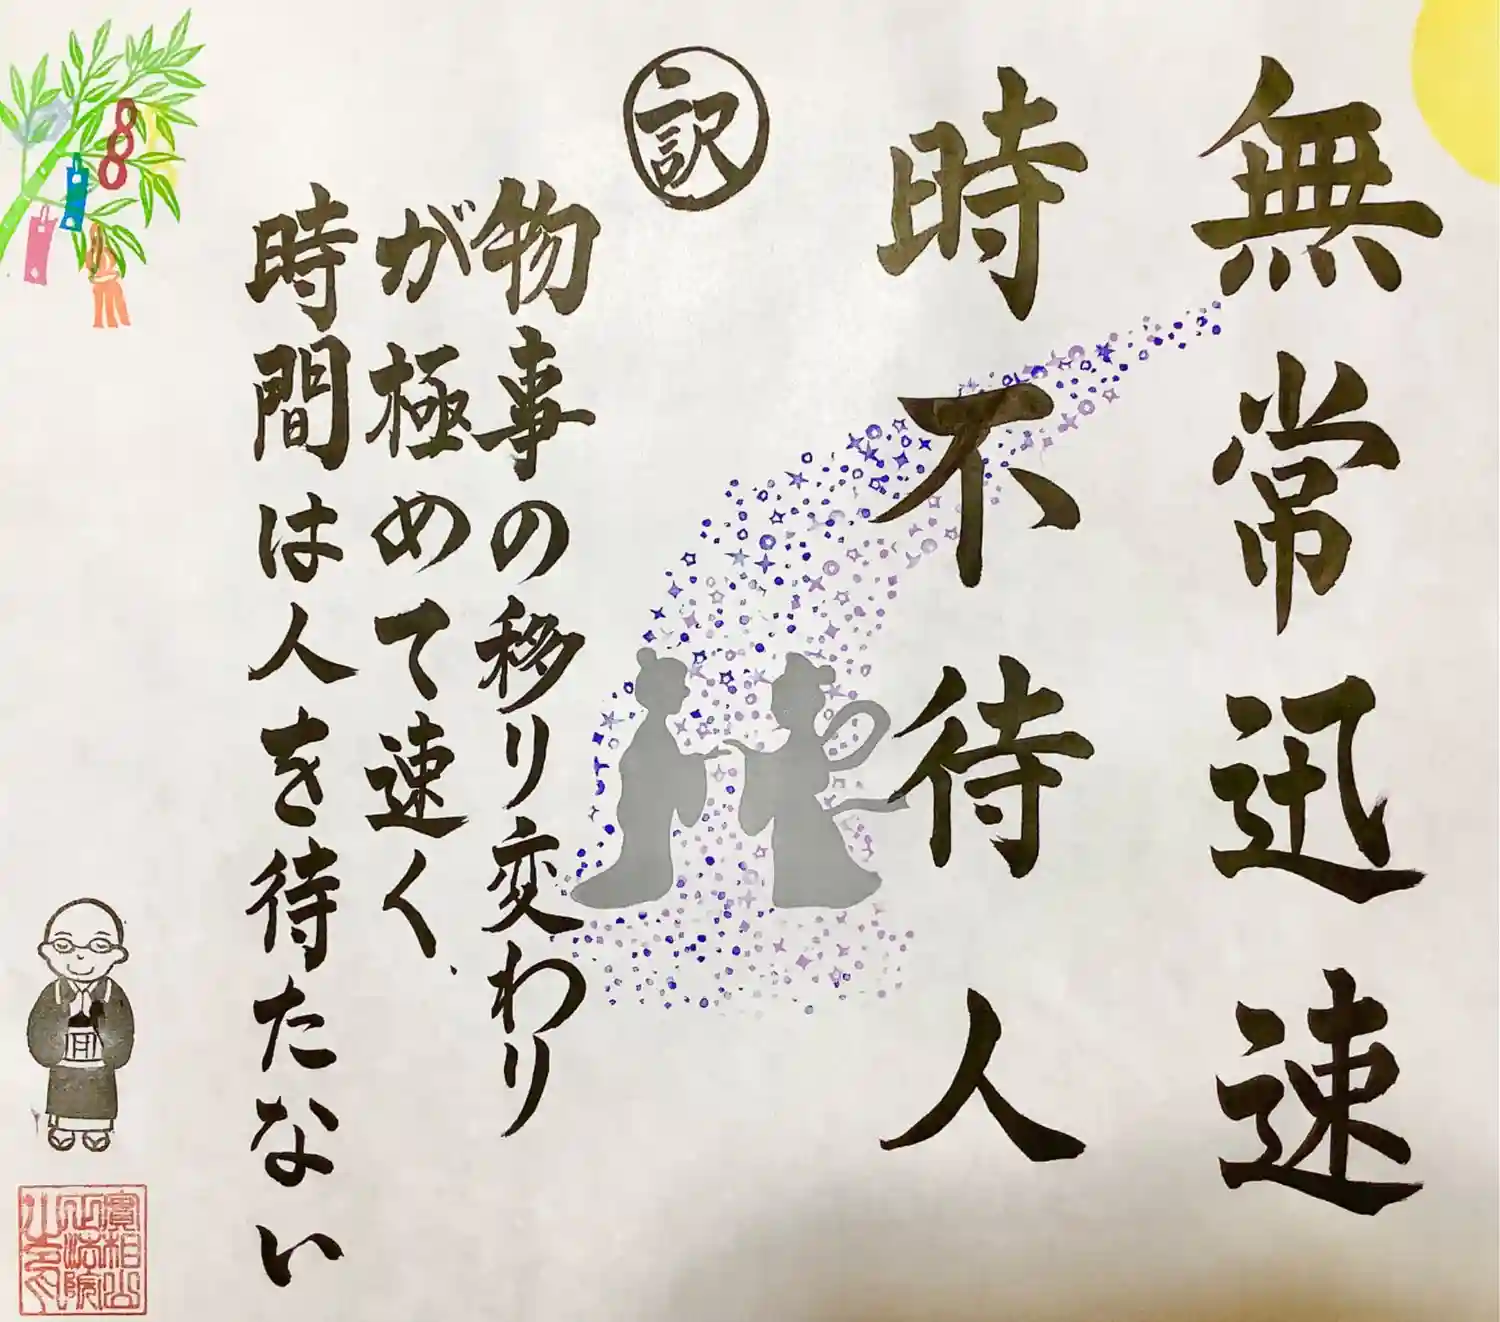 無常迅速
時不待人
訳
物事の移り変わり
が極めて速く、
時間は人を待たない